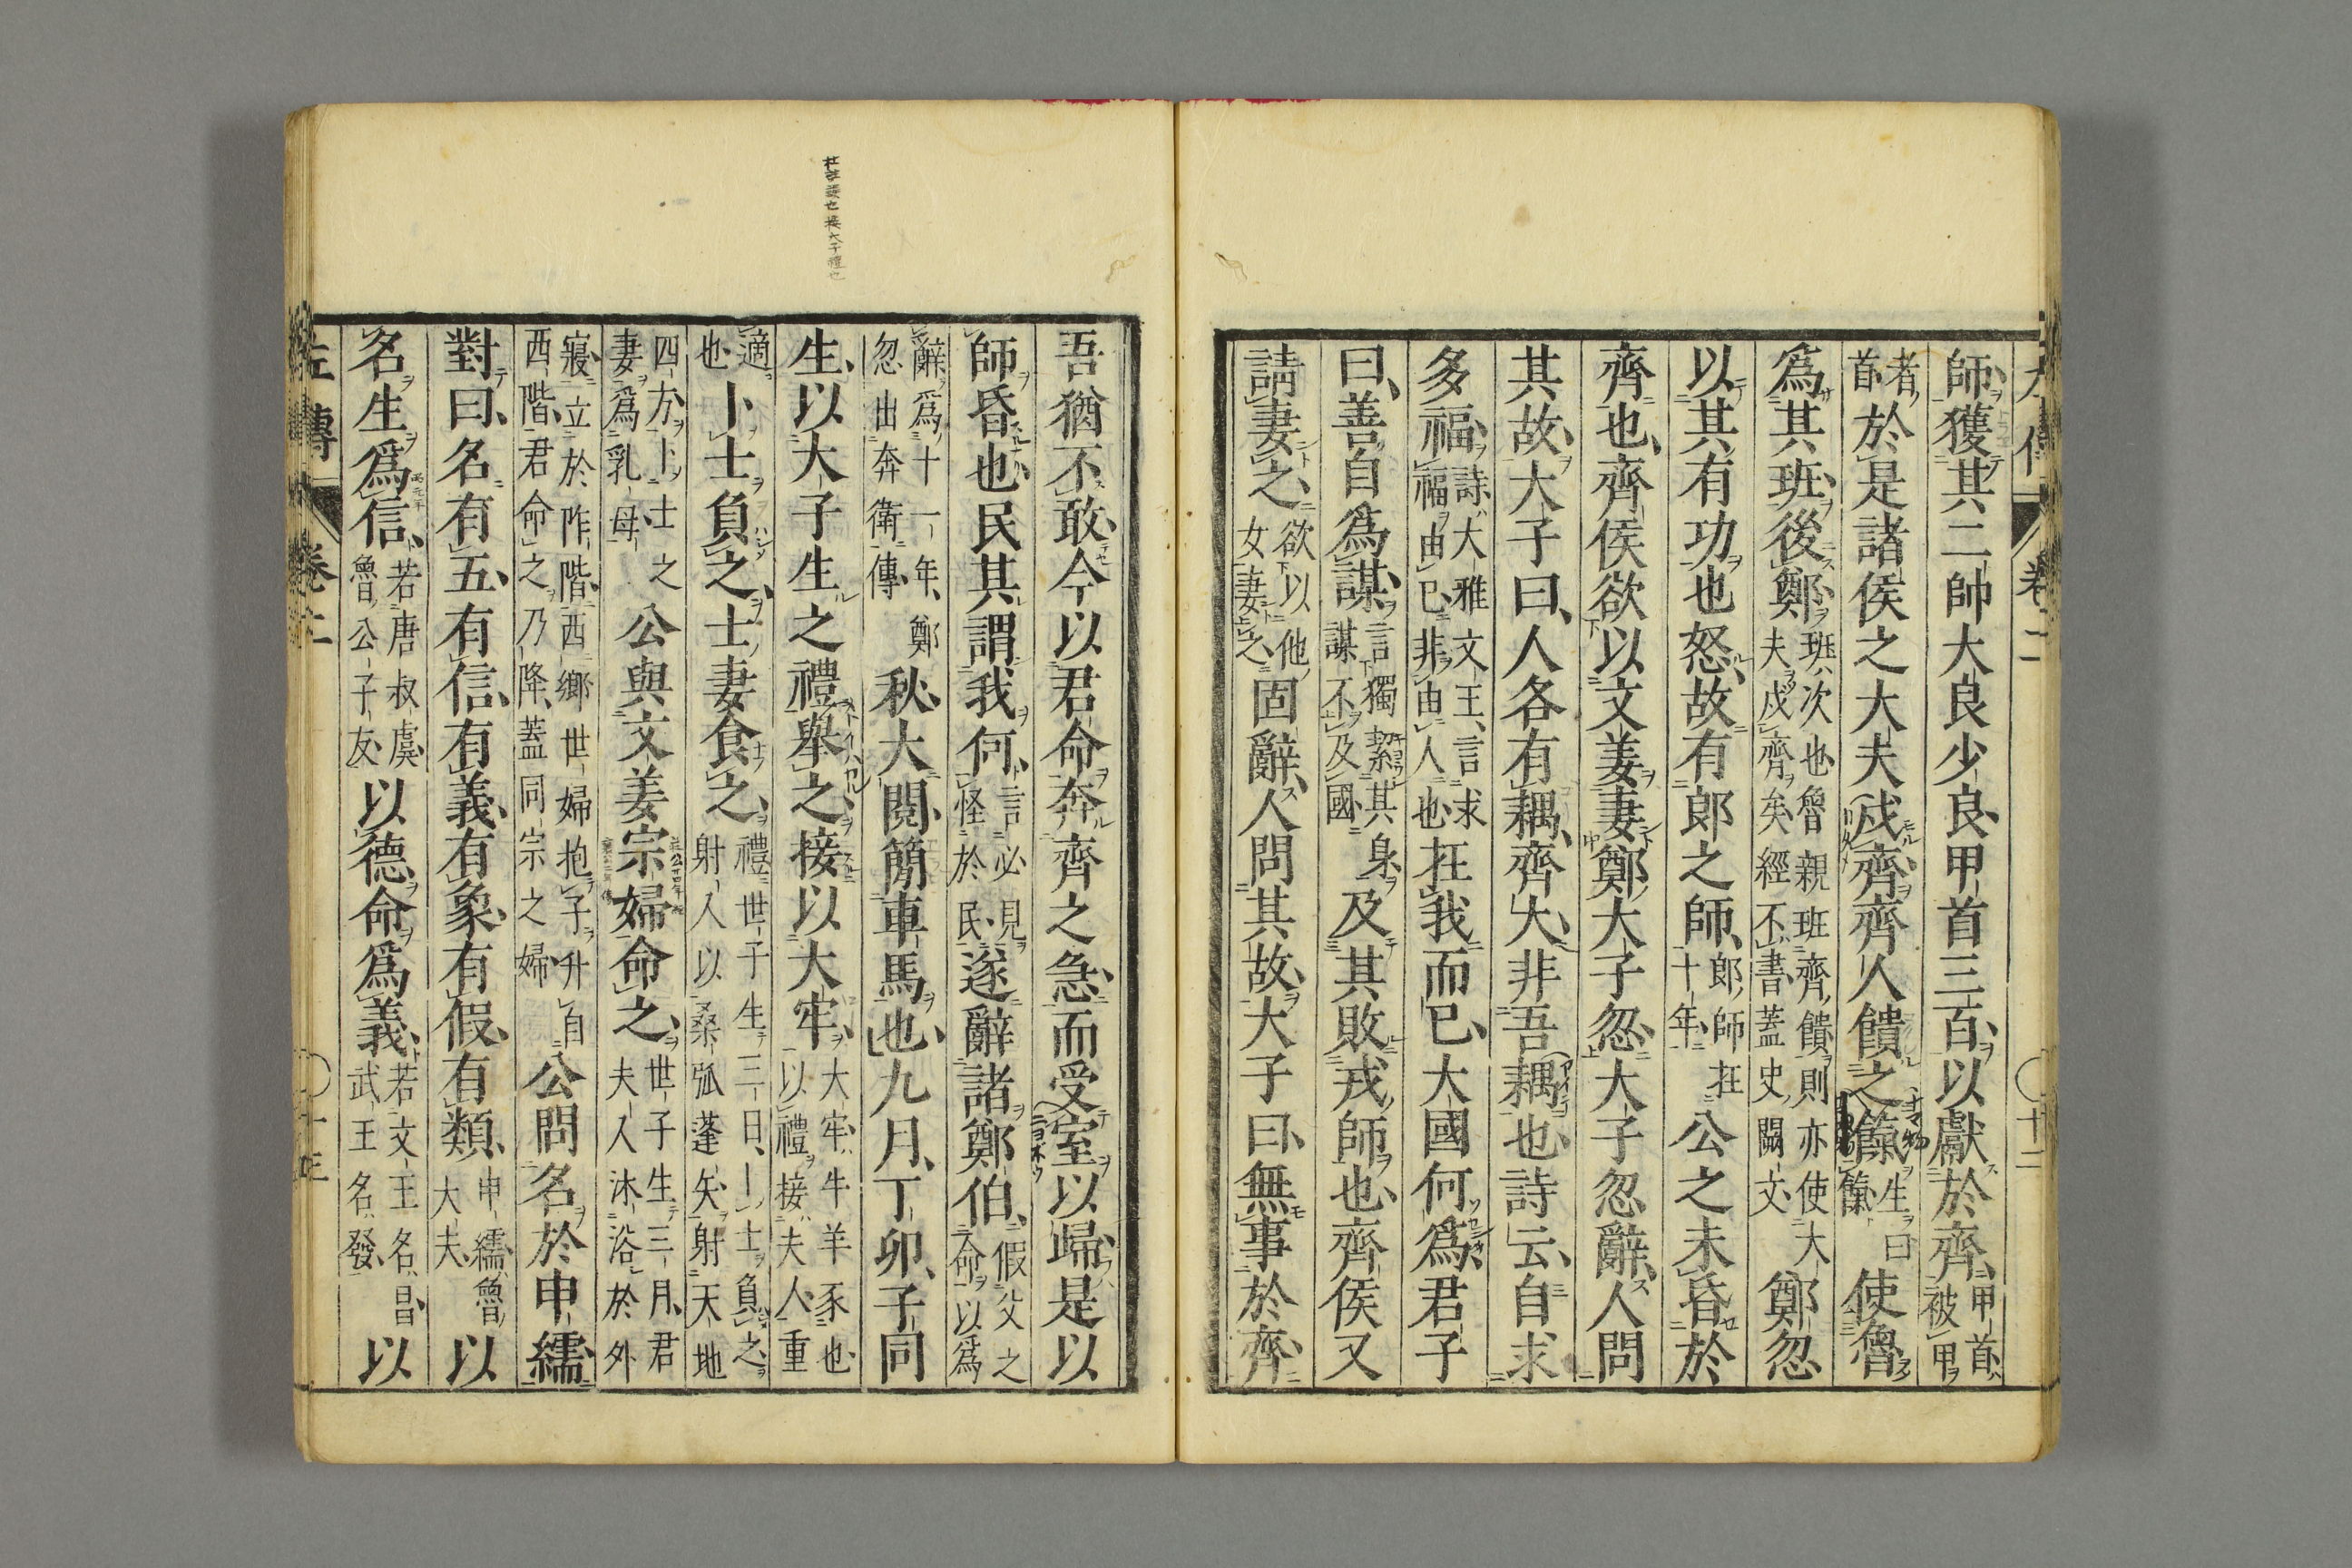 卷二 十二
師獲其二帥大良少良甲首三百以獻於齊甲首被甲
者首於是諸侯之大夫戍齊齊人饋之餼生曰餼使魯
爲其班後鄭班次也魯親班齊饋則亦使大夫戍齊矣經不書蓋史闕文鄭忽
以其有功也怒故有郎之師郎師在十年公之未昏於
齊也齊侯欲以文姜妻鄭大子忽大子忽辭人問
其故大子曰人各有耦齊大非吾耦也詩云自求
多福詩大雅文王言求福由已非由人也在我而已大國何爲君子
曰善自爲謀言獨絜其身謀不及國及其敗戎師也齊侯又
請妻之欲以他女妻之固辭人問其故大子曰無事於齊
吾猶不敢今以君命奔齊之急而受室以歸是以
師昏也民其謂我何言必見怪於民遂辭諸鄭伯假父之命以爲
辭爲十一年鄭忽出奔衛傳秋大閱簡車馬也九月丁卯子同
生以大子生之禮舉之接以大牢大牢牛羊豕也以禮接夫人重
適也卜士負之士妻食之禮世子生三日卜士負之射人以桑弧蓬矢射天地
四方卜士之妻爲乳母公與文姜宗婦命之世子生三月君夫人沐浴於外
寢立於阼階西鄉世婦抱子升自西階君命之乃降蓋同宗之婦公問名於申繻
對曰名有五有信有義有象有假有類申繻魯大夫以
名生爲信若唐叔虞魯公子友以德命爲義若文王名昌武王名發以
左傳 卷二 十三